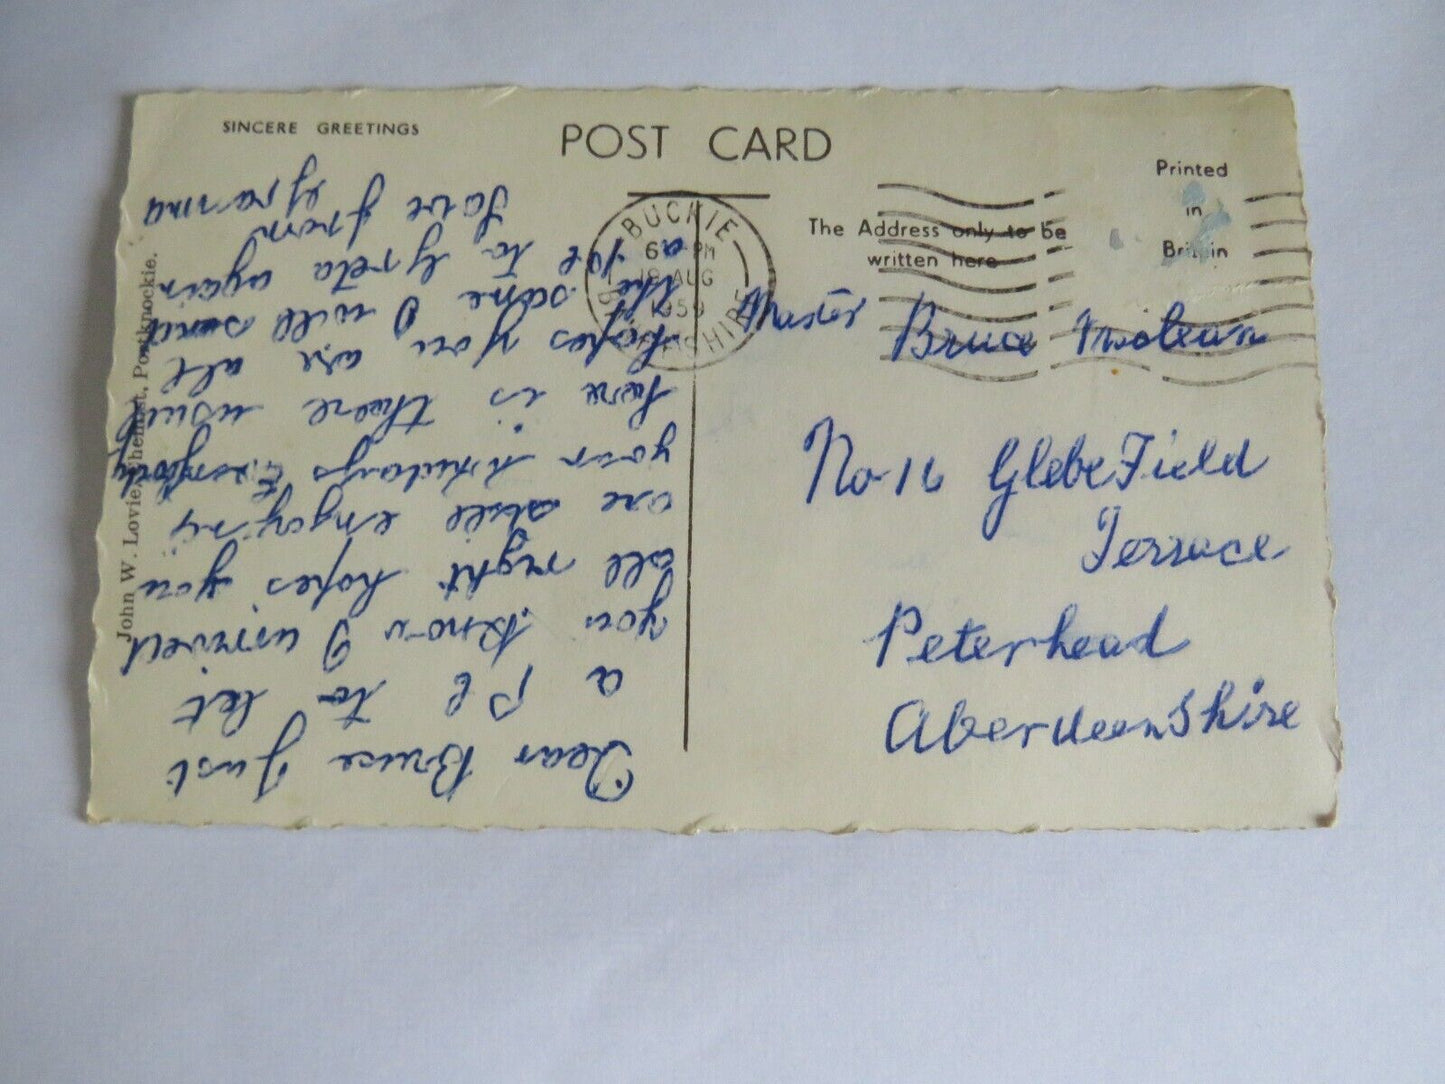 SINCERE GREETINGS
POST CARD
Printed
in
Britain
The Address only to be
written here
BUCKIE
6 PM
18 AUG
1959
BANFFSHIRE
John W. Lovie, Chemist, Portknockie.
Master Bruce
No 16 Glebe Field
Terrace
Peterhead
AberdeenShire
Dear Bruce Just
a P C to let
you know I arrived
all right hopes you
are still enjoying
your holidays Everybody
here is there usual
hopes you are all
the same I will send
a PC to Greta again
Love from
Granma